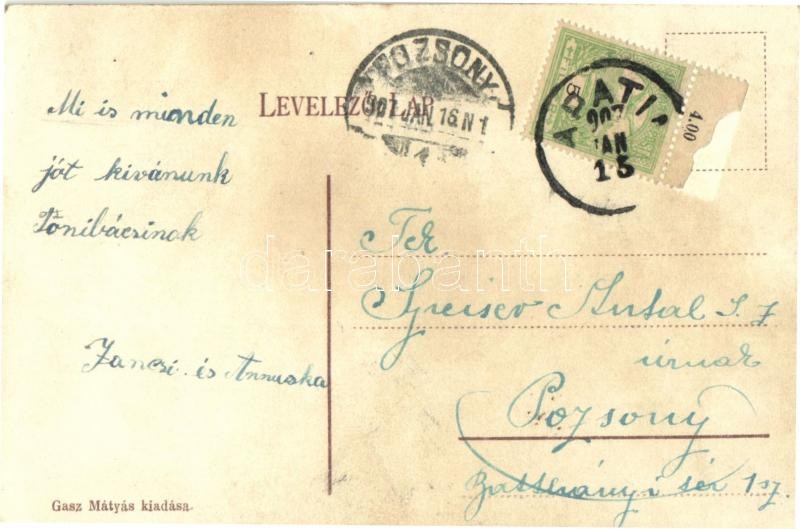 LEVELEZŐ-LAP.
POZSONY
907 JAN 16 N 1
5
4.00
907
JAN
15
Mi is minden
jót kivánunk
Tónibácsinak
Jancsi és Annuska
Tek.
Antal
úrnak
Pozsony
tér 1 sz.
Gasz Mátyás kiadása.
darabanth